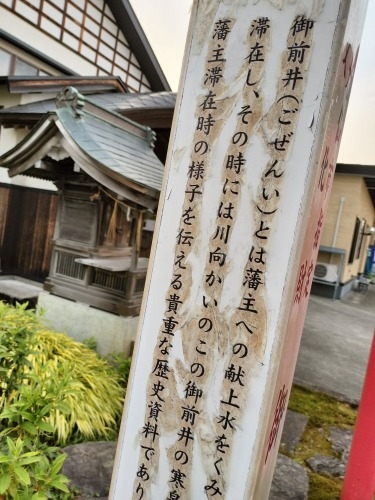 御前井（ごぜんい）とは藩主への献上水をくみ
滞在し、その時には川向かいのこの御前井の寒泉
藩主滞在時の様子を伝える貴重な歴史資料であり